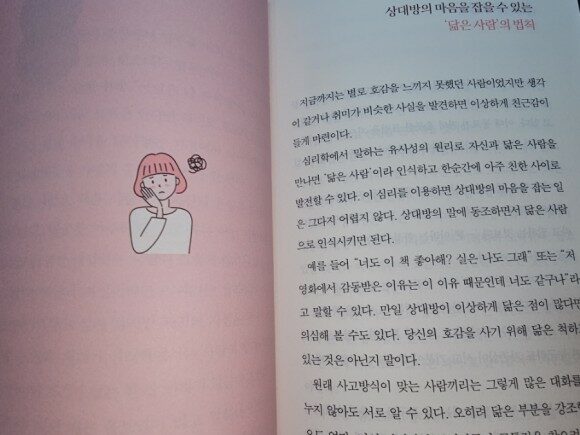 상대방의 마음을 잡을 수 있는
'닮은 사람'의 법칙
지금까지는 별로 호감을 느끼지 못했던 사람이었지만 생각
이 같거나 취미가 비슷한 사실을 발견하면 이상하게 친근감이
들게 마련이다.
심리학에서 말하는 유사성의 원리로 자신과 닮은 사람을
만나면 '닮은 사람'이라 인식하고 한순간에 아주 친한 사이로
발전할 수 있다. 이 심리를 이용하면 상대방의 마음을 잡는 일
은 그다지 어렵지 않다. 상대방의 말에 동조하면서 닮은 사람
으로 인식시키면 된다.
예를 들어 "너도 이 책 좋아해? 실은 나도 그래" 또는 "저
영화에서 감동받은 이유는 이 이유 때문인데 너도 같구나"라
고 말할 수 있다. 만일 상대방이 이상하게 닮은 점이 많다면
의심해 볼 수도 있다. 당신의 호감을 사기 위해 닮은 척하
있는 것은 아닌지 말이다.
원래 사고방식이 맞는 사람끼리는 그렇게 많은 대화를
누지 않아도 서로 알 수 있다. 오히려 닮은 부분을 강조